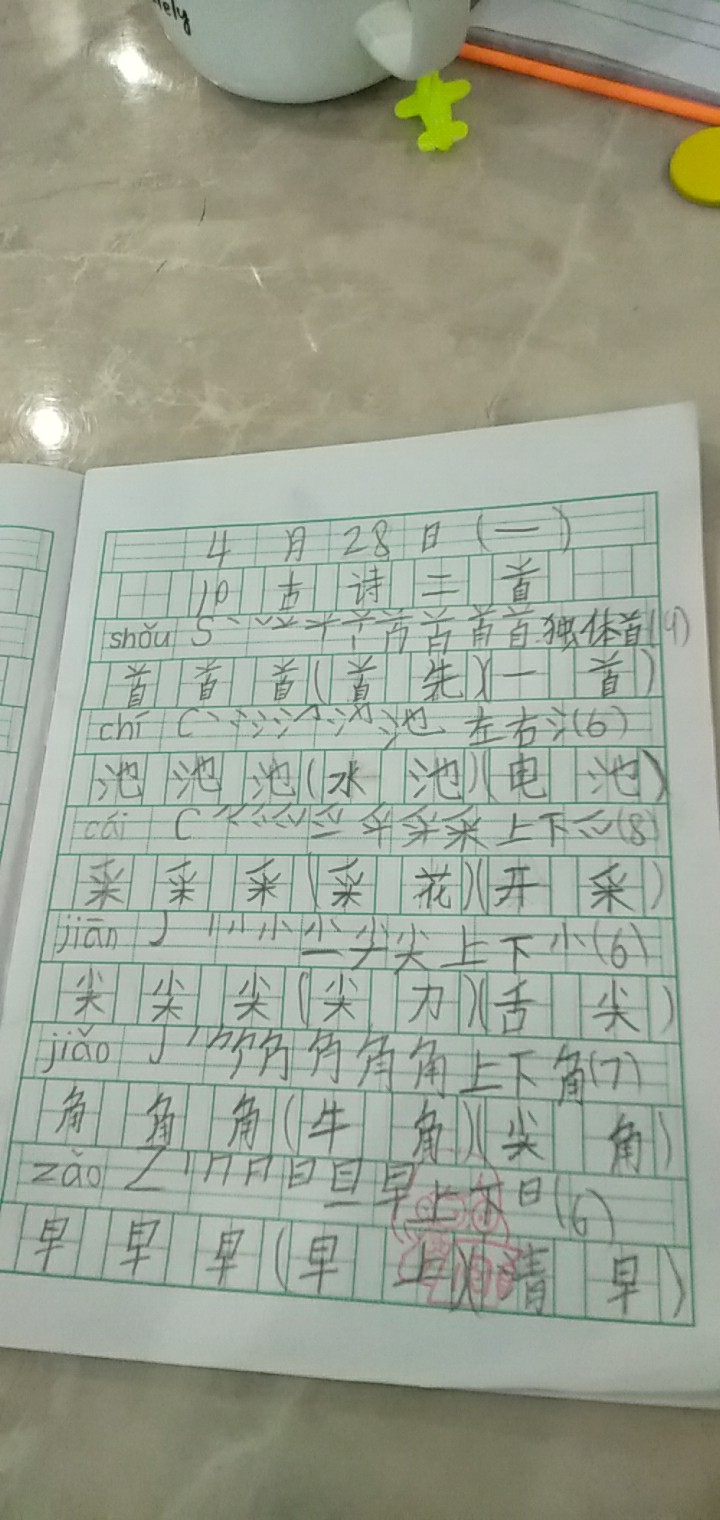 ely
4月28日(一)
10 古诗二首
shǒu S 丶 丷 䒑 首 首 独体首(9)
首 首 首(首先)(一首)
chí C 丶 冫 氵 池 左右氵(6)
池 池 池(水池)(电池)
cǎi C 采 上下爫(8)
采 采 采(采花)(开采)
jiān J 小 尖 上下小(6)
尖 尖 尖(尖力)(舌尖)
jiǎo J 角 上下角(7)
角 角 角(牛角)(尖角)
zǎo Z 丨 冂 日 日 旦 早 上下日(6)
早 早 早(早上)(清早)